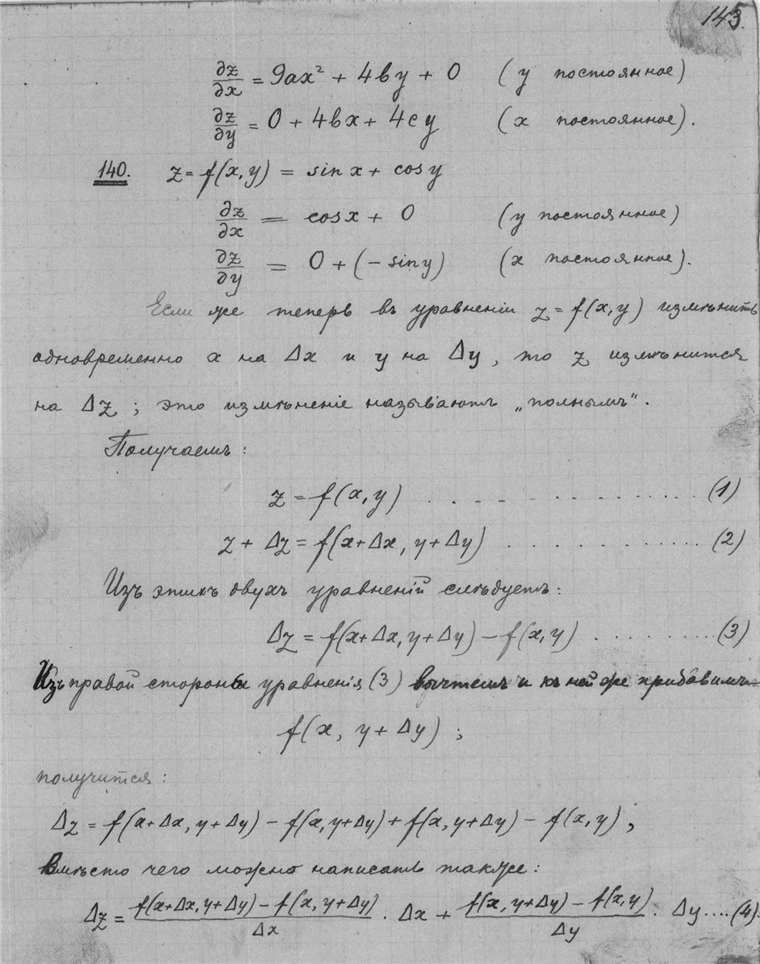 143.
∂z/∂x = 9ax² + 4by + 0 (y постоянное)
∂z/∂y = 0 + 4bx + 4cy (x постоянное).
140. z = f(x, y) = sin x + cos y
∂z/∂x = cos x + 0 (y постоянное)
∂z/∂y = 0 + (− sin y) (x постоянное).
Если же теперь въ уравненіи z = f(x, y) измѣнить
одновременно x на Δx и y на Δy, то z измѣнится
на Δz; это измѣненіе называютъ „полнымъ“.
Получаемъ:
z = f(x, y) . . . . . . . . . . . (1)
z + Δz = f(x+Δx, y+Δy) . . . . . . . . . (2)
Изъ этихъ двухъ уравненій слѣдуетъ:
Δz = f(x+Δx, y+Δy) − f(x, y) . . . . . . . . (3)
Изъ правой стороны уравненія (3) вычтемъ и къ ней же прибавимъ
f(x, y + Δy);
получится:
Δz = f(x+Δx, y+Δy) − f(x, y+Δy) + f(x, y+Δy) − f(x, y);
вмѣсто чего можно написать также:
Δz = (f(x+Δx, y+Δy) − f(x, y+Δy))/Δx · Δx + (f(x, y+Δy) − f(x, y))/Δy · Δy .... (4).